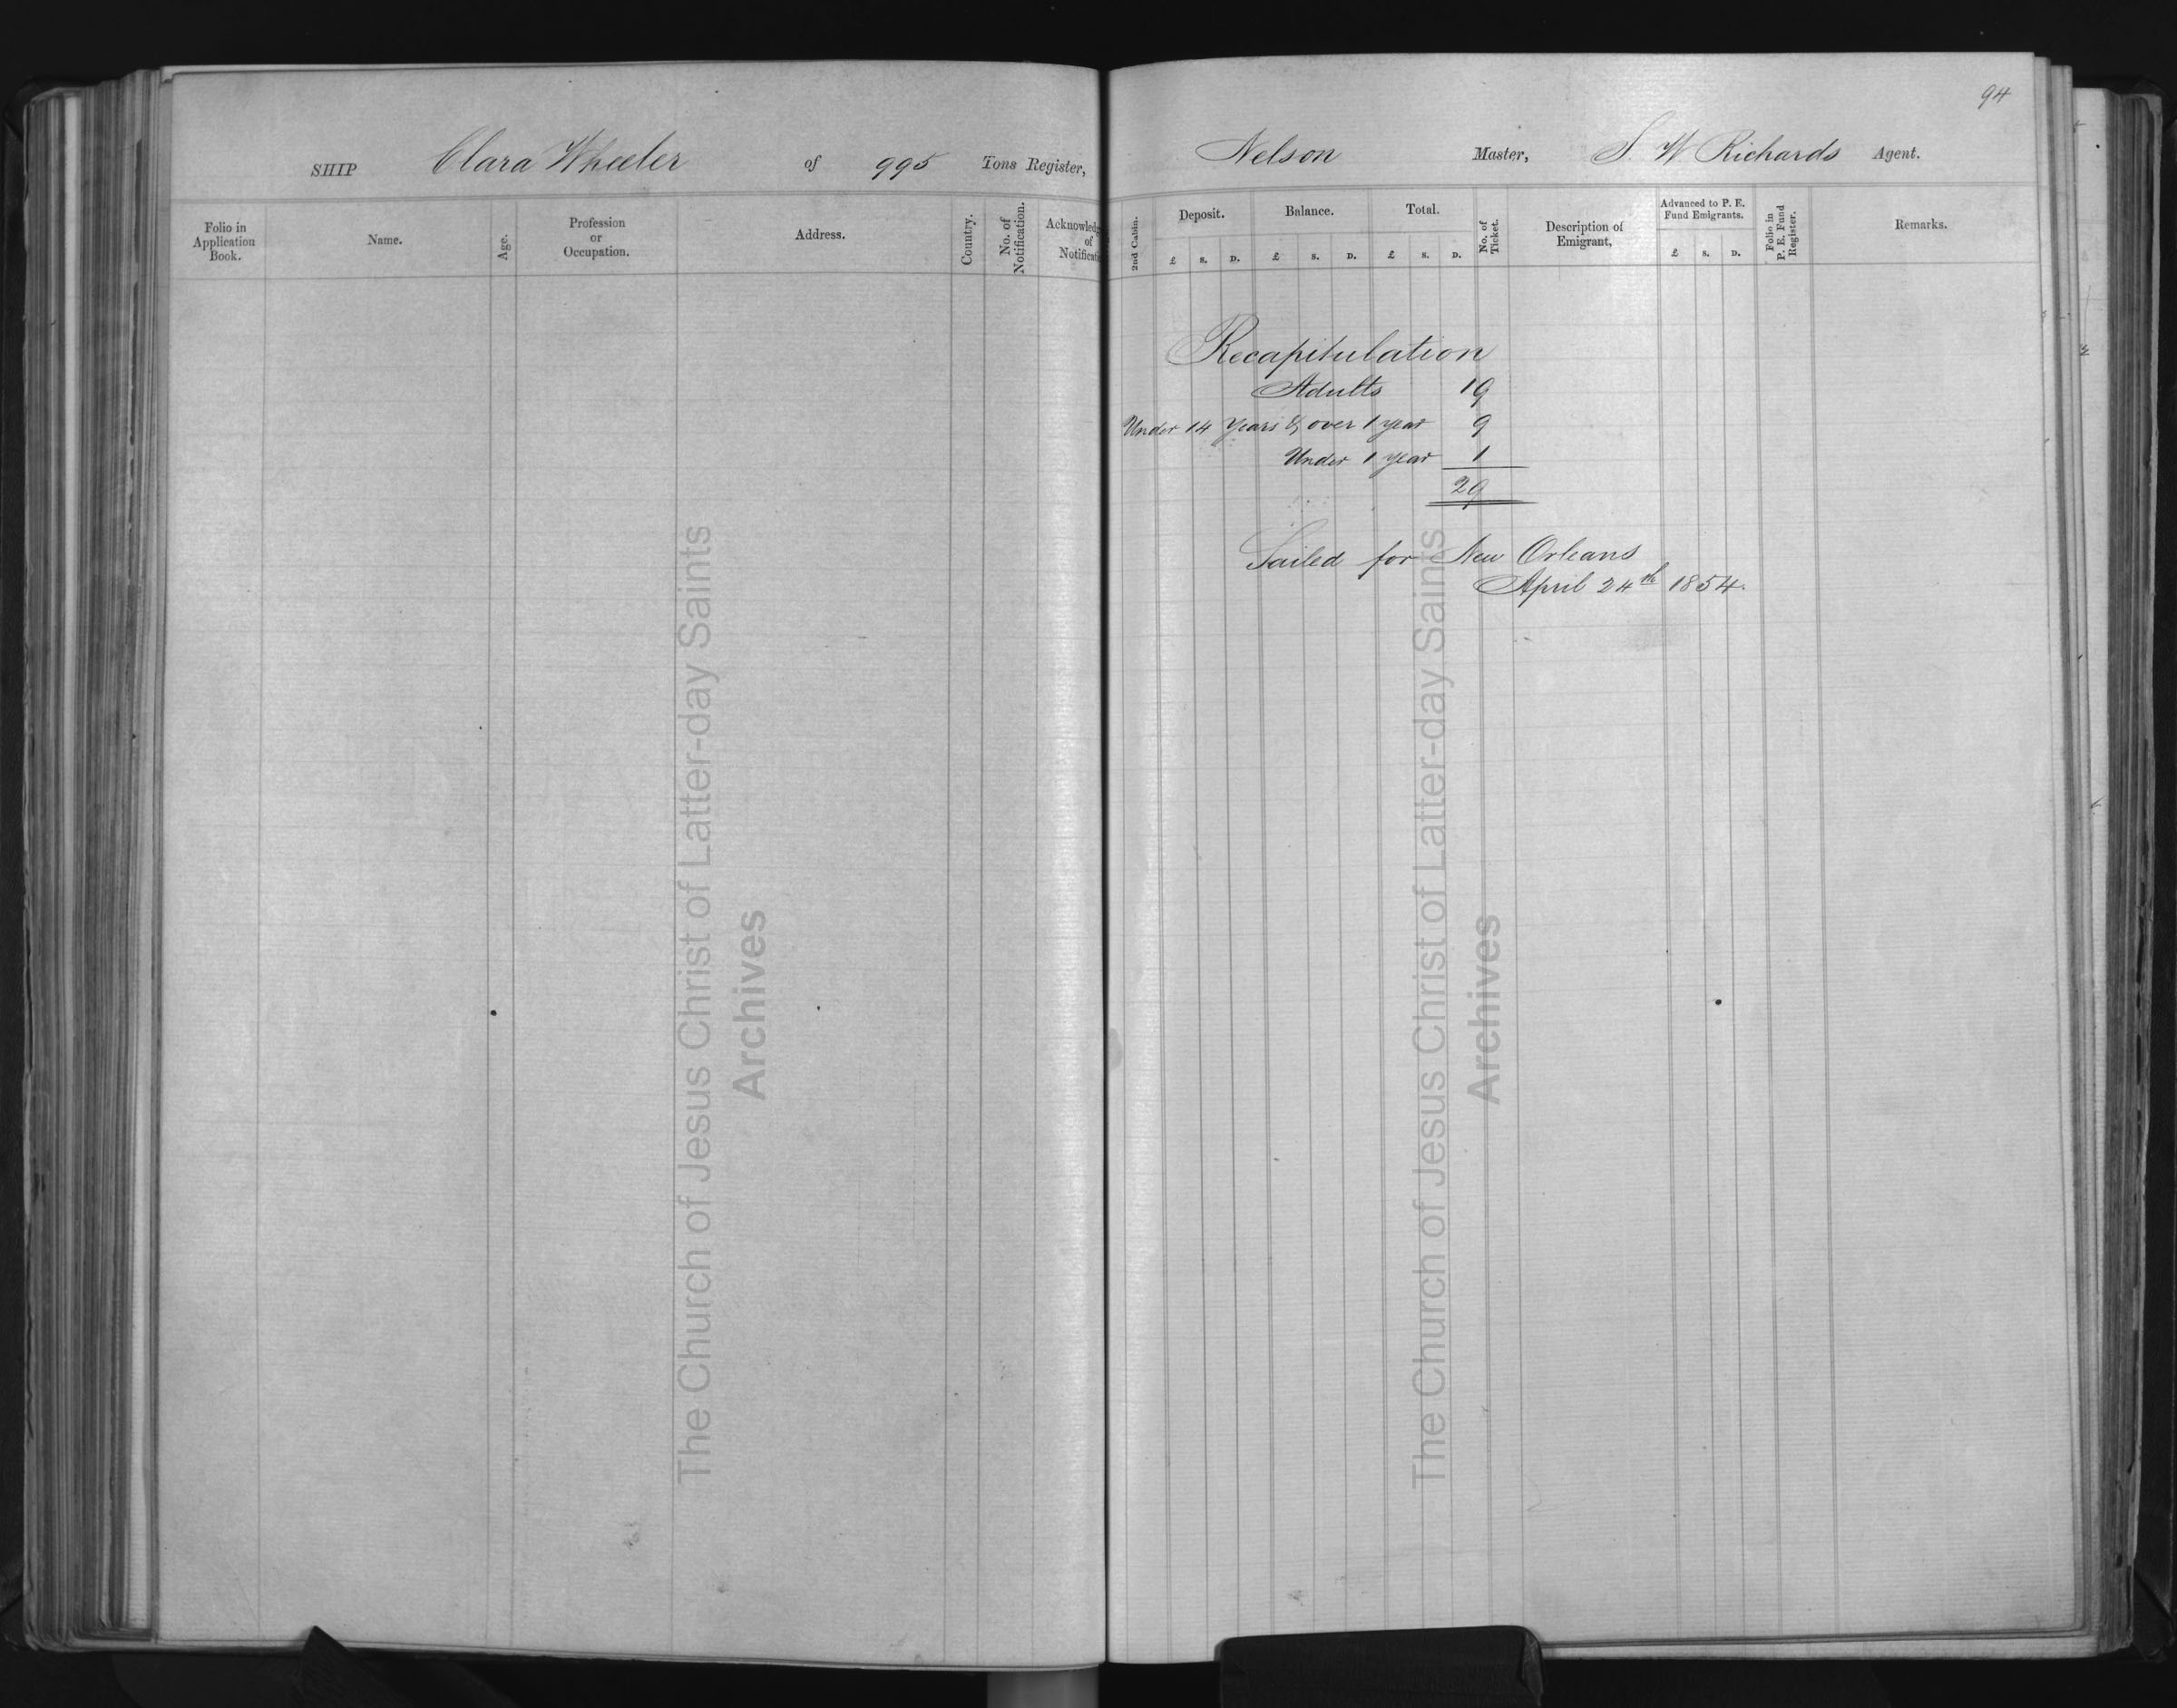 94
SHIP Clara Wheeler of 995 Tons Register, Nelson Master, S. W Richards Agent.
Folio in
Application
Book.
Name.
Age.
Profession
or
Occupation.
Address.
Country.
No. of
Notification.
of
2nd Cabin.
Deposit.
£ S. D.
Balance.
£ S. D.
Total.
£ S. D.
No. of
Ticket.
Description of
Emigrant,
Advanced to P. E.
Fund Emigrants.
£ S. D.
Folio in
P. E. Fund
Register.
Remarks.
Recapitulation
Adults 19
Under 14 Years & over 1 year 9
Under 1 year 1
29
Sailed for New Orleans
April 24th 1854.
The Church of Jesus Christ of Latter-day Saints
Archives
The Church of Jesus Christ of Latter-day Saints
Archives